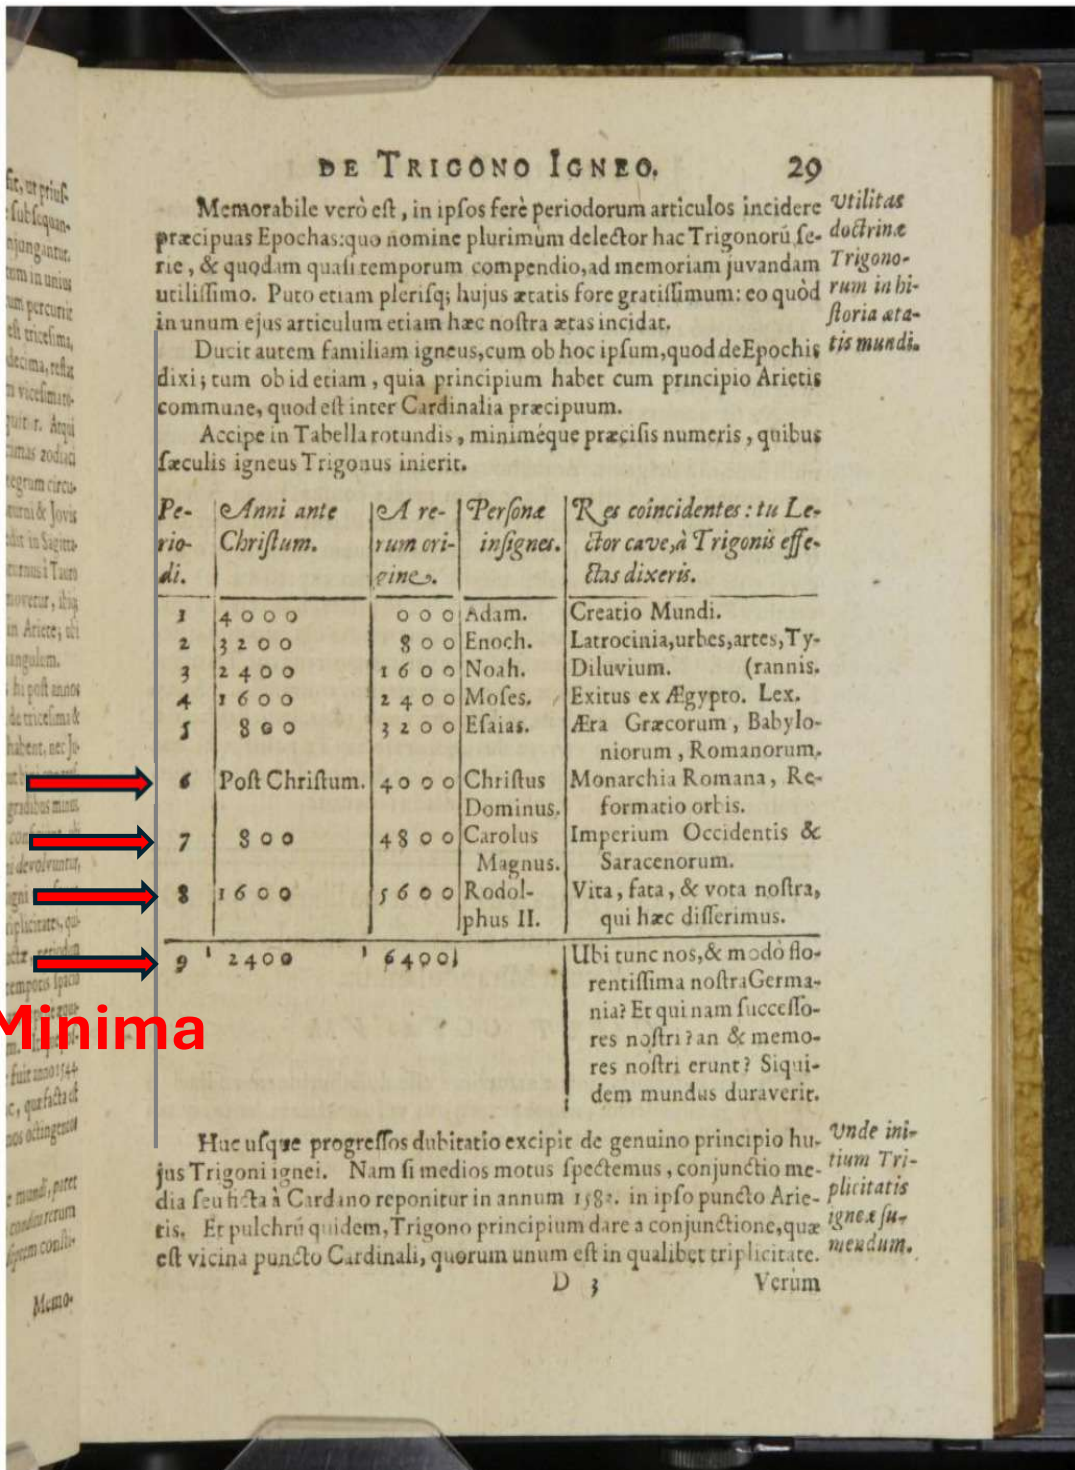 DE TRIGONO IGNEO. 29
Memorabile verò est, in ipsos ferè periodorum articulos incidere
præcipuas Epochas: quo nomine plurimùm delector hac Trigonorũ se-
rie, & quodam quasi temporum compendio, ad memoriam juvandam
utilissimo. Puto etiam plerisq; hujus ætatis fore gratissimum: eo quòd
in unum ejus articulum etiam hæc nostra ætas incidat.
Utilitas
doctrinæ
Trigono-
rum in hi-
storia æta-
tis mundi.
Ducit autem familiam igneus, cum ob hoc ipsum, quod de Epochis
dixi; tum ob id etiam, quia principium habet cum principio Arietis
commune, quod est inter Cardinalia præcipuum.
Accipe in Tabella rotundis, minimèque præcisis numeris, quibus
sæculis igneus Trigonus inierit.
Pe- Anni ante A re- Personæ Res coincidentes: tu Le-
rio- Christum. rum ori- insignes. ctor cave, à Trigonis effe-
di. gine. ctas dixeris.
1 4000 000 Adam. Creatio Mundi.
2 3200 800 Enoch. Latrocinia, urbes, artes, Ty-
3 2400 1600 Noah. Diluvium. (rannis.
4 1600 2400 Moses. Exitus ex Ægypto. Lex.
5 800 3200 Esaias. Æra Græcorum, Babylo-
niorum, Romanorum.
6 Post Christum. 4000 Christus Monarchia Romana, Re-
Dominus. formatio orbis.
7 800 4800 Carolus Imperium Occidentis &
Magnus. Saracenorum.
8 1600 5600 Rodol- Vita, fata, & vota nostra,
phus II. qui hæc disserimus.
9 2400 6400 Ubi tunc nos, & modò flo-
rentissima nostra Germa-
nia? Et qui nam successo-
res nostri? an & memo-
res nostri erunt? Siqui-
dem mundus duraverit.
Minima
Huc usque progressos dubitatio excipit de genuino principio hu-
jus Trigoni ignei. Nam si medios motus spectemus, conjunctio me-
dia seu ficta à Cardano reponitur in annum 1582. in ipso puncto Arie-
tis. Et pulchrũ quidem, Trigono principium dare a conjunctione, quæ
est vicina puncto Cardinali, quorum unum est in qualibet triplicitate.
Unde ini-
tium Tri-
plicitatis
igneæ su-
mendum.
D 3 Verùm
Memo-